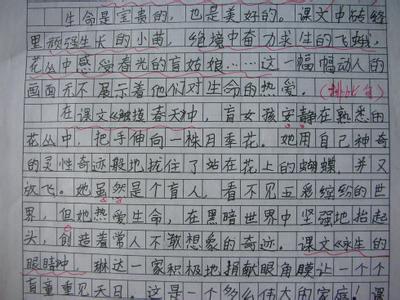 生命是宝贵的，也是美好的。课文中砖缝
里顽强生长的小苗，绝境中奋力求生的飞蛾，
花丛中感受春光的盲姑娘……这一幅幅动人的
画面无不展示着他们对生命的热爱。（排比句）
在课文《触摸春天》中，盲女孩安静在熟悉的
花丛中，把手伸向一株月季花。她用自己神奇
的灵性奇迹般地拢住了站在花上的蝴蝶，并又
放飞。她虽然是个盲人，看不见五彩缤纷的世
界，但她热爱生命，在黑暗世界中坚强地抬起
头，创造着常人不敢想象的奇迹。课文《永生的
眼睛》中，琳达一家积极地捐献眼角膜让一个个
盲童重见天日。这是一个多么伟大的家庭！课